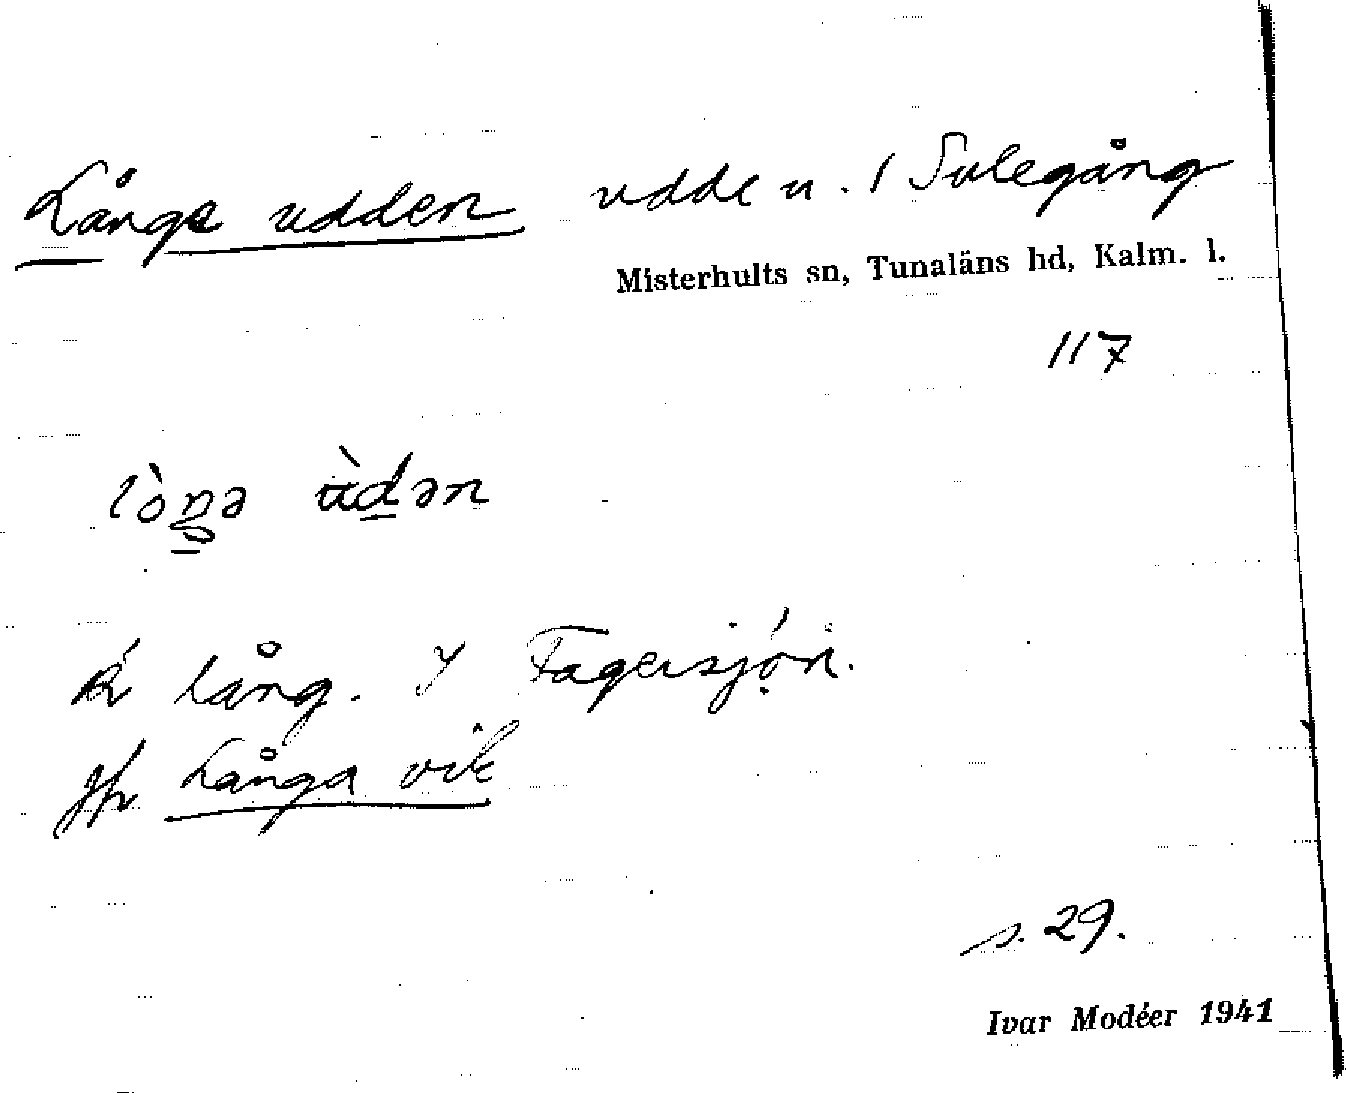 Långe udden udde u. 1 Solegång
Misterhults sn, Tunaläns hd, Kalm. l.
117
lòŋə ùdən
Är lång. I Fagersjön.
Jfr Långa vik
s. 29.
Ivar Modéer 1941